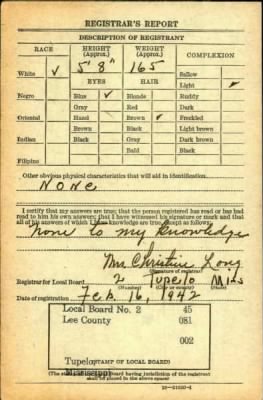 REGISTRAR'S REPORT
DESCRIPTION OF REGISTRANT
RACE HEIGHT (Approx.) WEIGHT (Approx.) COMPLEXION
White ✓ 5' 8" 165 Sallow
EYES HAIR Light ✓
Negro Blue ✓ Blonde Ruddy
Gray Red Dark
Oriental Hazel Brown ✓ Freckled
Brown Black Light brown
Indian Black Gray Dark brown
Bald Black
Filipino
Other obvious physical characteristics that will aid in identification
None
I certify that my answers are true; that the person registered has read or has had
read to him his own answers; that I have witnessed his signature or mark and that
all of his answers of which I have knowledge are true, except as follows:
none to my knowledge
Mrs Christine Long
(Signature of registrar)
Registrar for Local Board 2 Tupelo Miss
Date of registration Feb. 16, 1942
Local Board No. 2 45
Lee County 081
002
Tupelo
(STAMP OF LOCAL BOARD)
Mississippi
(The stamp of the Local Board having jurisdiction of the registrant
shall be placed in the above space.)